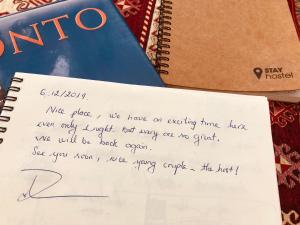 ONTO
STAY
hostel
6.12/2019.
Nice place, we have an exciting time here
even only 1 night. But every one so great.
We will be back again.
See you soon, nice young couple - the host!